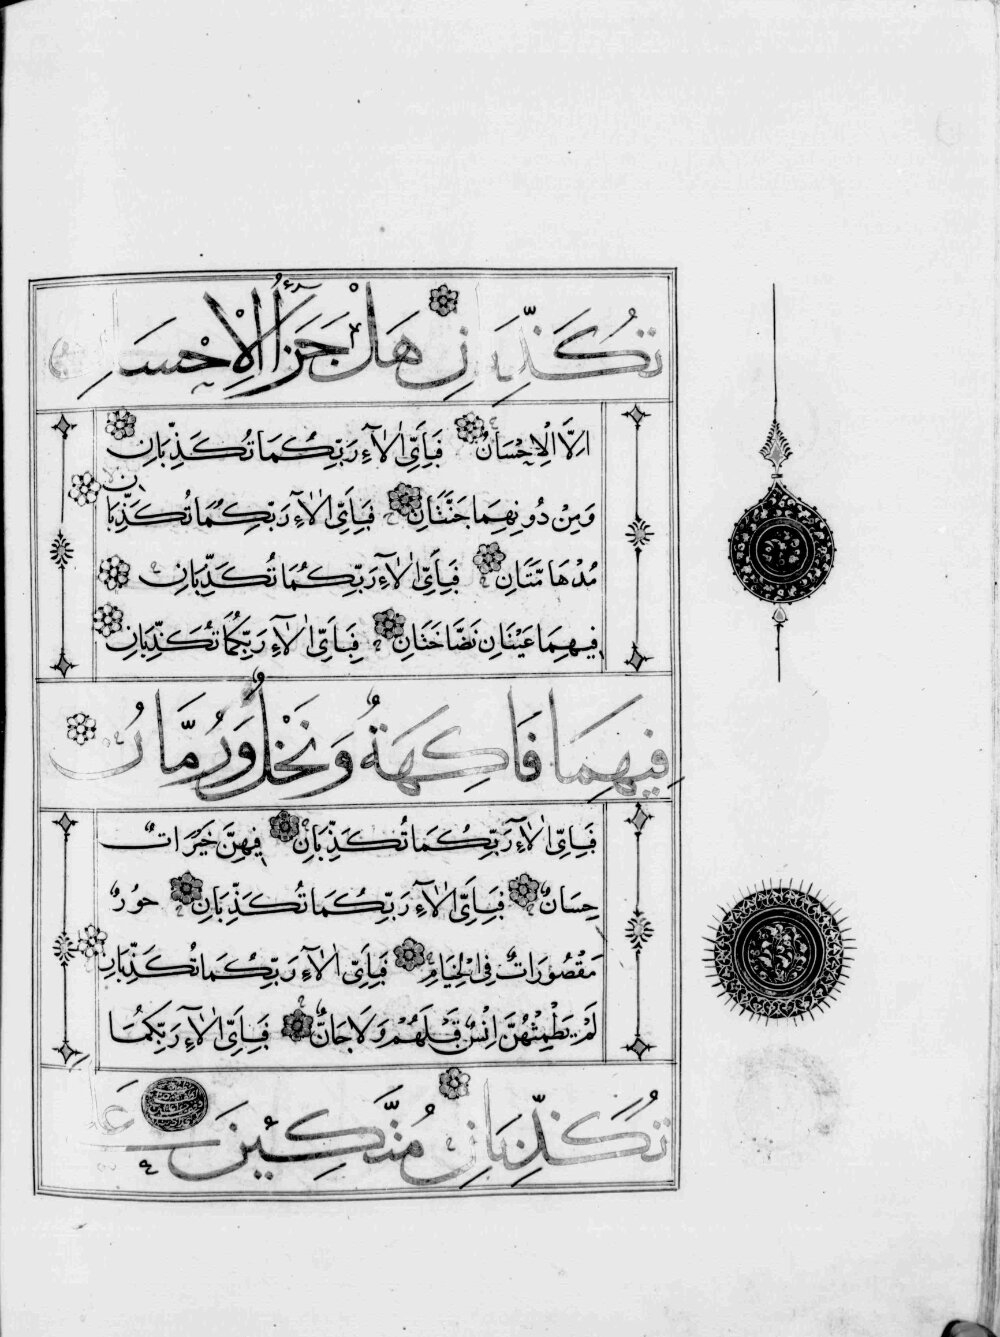 تُكَذِّبَانِ هَلْ جَزَآءُ الْاِحْسَانِ
اِلَّا الْاِحْسَانُ فَبِاَيِّ اٰلَآءِ رَبِّكُمَا تُكَذِّبَانِ
وَمِنْ دُونِهِمَا جَنَّتَانِ فَبِاَيِّ اٰلَآءِ رَبِّكُمَا تُكَذِّبَانِ
مُدْهَامَّتَانِ فَبِاَيِّ اٰلَآءِ رَبِّكُمَا تُكَذِّبَانِ
فِيهِمَا عَيْنَانِ نَضَّاخَتَانِ فَبِاَيِّ اٰلَآءِ رَبِّكُمَا تُكَذِّبَانِ
فِيهِمَا فَاكِهَةٌ وَنَخْلٌ وَرُمَّانٌ
فَبِاَيِّ اٰلَآءِ رَبِّكُمَا تُكَذِّبَانِ فِيهِنَّ خَيْرَاتٌ
حِسَانٌ فَبِاَيِّ اٰلَآءِ رَبِّكُمَا تُكَذِّبَانِ حُورٌ
مَقْصُورَاتٌ فِى الْخِيَامِ فَبِاَيِّ اٰلَآءِ رَبِّكُمَا تُكَذِّبَانِ
لَمْ يَطْمِثْهُنَّ اِنْسٌ قَبْلَهُمْ وَلَا جَانٌّ فَبِاَيِّ اٰلَآءِ رَبِّكُمَا
تُكَذِّبَانِ مُتَّكِئِينَ